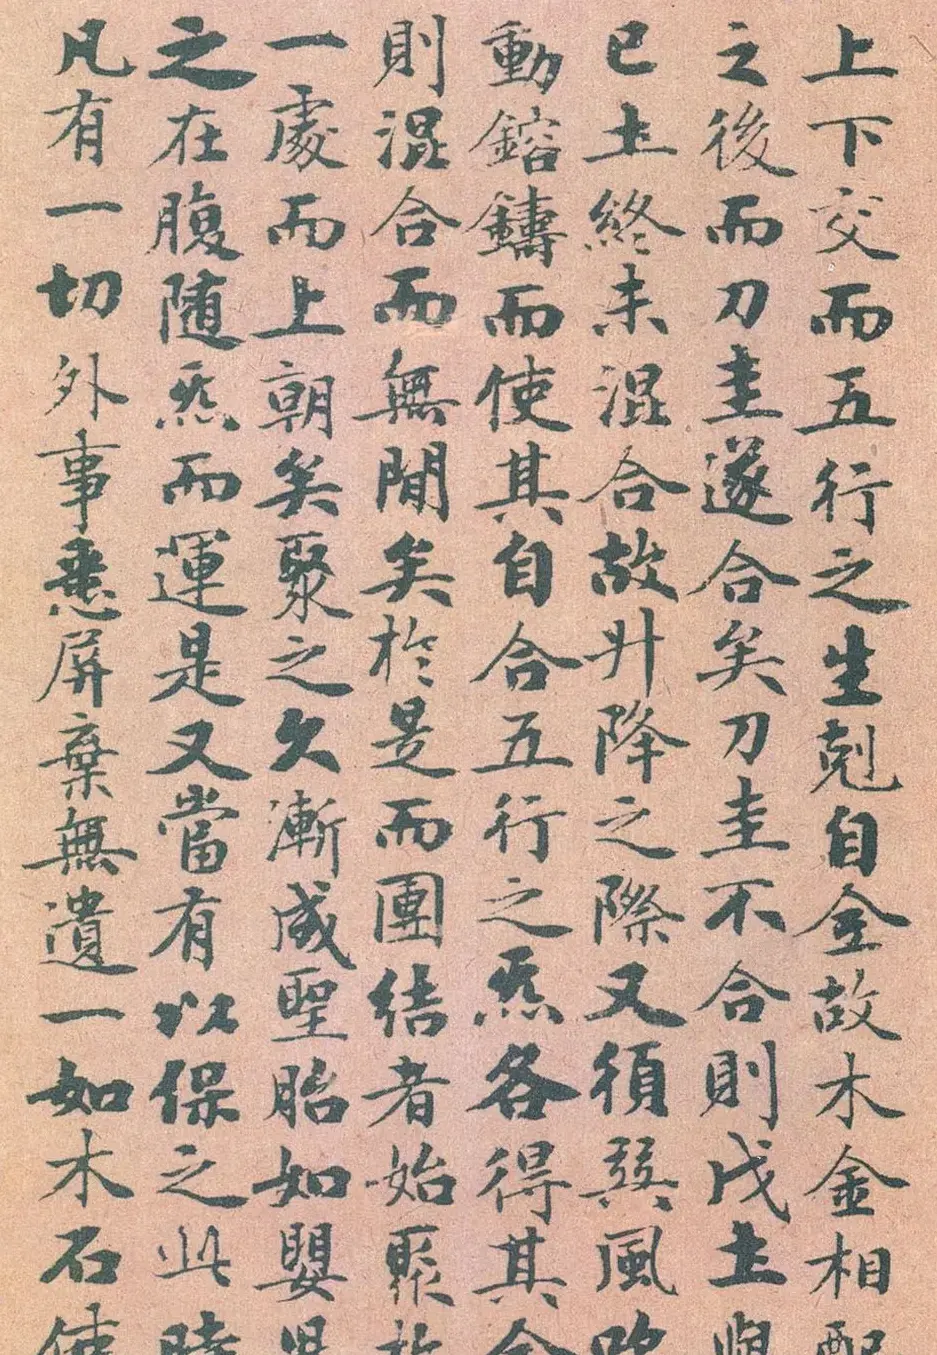 上下交而五行之生剋自全故木金相配
之後而刀圭遂合矣刀圭不合則戊土與
已土終未混合故升降之際又須巽風吹
動鎔鑄而使其自合五行之炁各得其合
則混合而無間矣於是而團結者始聚於
一處而上朝矣聚之久漸成聖胎如嬰兒
之在腹隨炁而運是又當有以保之此時
凡有一切外事悉屏棄無遺一如木石使